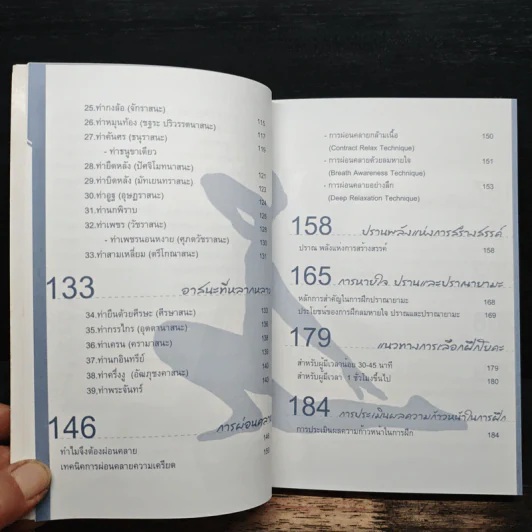 25.ท่ากงล้อ (จักราสนะ)
26.ท่าหมุนท้อง (ชฐระ ปริวรรตนาสนะ) 115
27.ท่าคันศร (ธนุราสนะ) 117
- ท่าธนูขาเดียว 119
28.ท่ายืดหลัง (ปัศจิโมทนาสนะ) 121
29.ท่าบิดหลัง (มัทเยนทราสนะ) 123
30.ท่าอูฐ (อุษฏราสนะ) 124
31.ท่านกพิราบ
32.ท่าเพชร (วัชราสนะ)
- ท่าเพชรนอนหงาย (ศุภตวัชราสนะ) 130
33.ท่าสามเหลี่ยม (ตรีโกณาสนะ) 131
133 อาสนะที่หลากหลาย
34.ท่ายืนด้วยศีรษะ (ศีรษาสนะ)
35.ท่ากรรไกร (อุตตานาสนะ)
36.ท่าเครน (ครามาสนะ)
37.ท่านกอินทรีย์
38.ท่าครึ่งงู (อัฒภุชงคาสนะ)
39.ท่าพระจันทร์
146 การผ่อนคลาย
ทำไมจึงต้องผ่อนคลาย
เทคนิคการผ่อนคลายความเครียด
- การผ่อนคลายกล้ามเนื้อ 150
(Contract Relax Technique)
- การผ่อนคลายด้วยลมหายใจ 151
(Breath Awareness Technique)
- การผ่อนคลายอย่างลึก 153
(Deep Relaxation Technique)
158 ปราณพลังแห่งการสร้างสรรค์
ปราณ พลังแห่งการสร้างสรรค์ 158
165 การหายใจ ปราณและปราณายามะ
หลักการสำคัญในการฝึกปราณายามะ 168
ประโยชน์ของการฝึกลมหายใจ ปราณและปราณายามะ 169
179 แนวทางการเลือกฝึกโยคะ
สำหรับผู้มีเวลาน้อย 30-45 นาที 179
สำหรับผู้มีเวลา 1 ชั่วโมงขึ้นไป 180
184 การประเมินผลความก้าวหน้าในการฝึก
การประเมินผลความก้าวหน้าในการฝึก 184